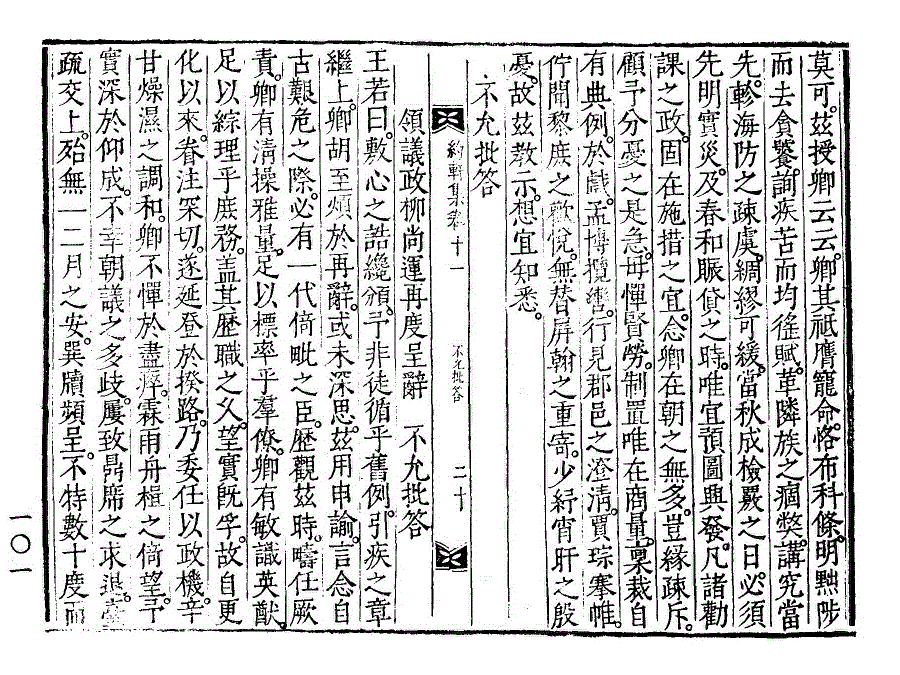 莫可。玆授卿云云。卿其祗膺寵命。恪布科條。明黜陟
而去貪饕。詢疾苦而均徭賦。革隣族之痼弊。講究當
先。軫海防之疎虞。綢繆可緩。當秋成檢覈之日。必須
先明實災。及春和賑貸之時。唯宜預圖興發。凡諸勸
課之政。固在施措之宜。念卿在朝之無多。豈緣疎斥。
顧予分憂之是急。毋憚賢勞。制置唯在商量。稟裁自
有典例。於戱。孟博攬轡。行見郡邑之澄淸。賈琮褰帷。
佇聞黎庶之歡悅。無替屛翰之重寄。少紓宵旰之殷
憂。故玆敎示。想宜知悉。
不允批答
約軒集卷十一
不允批答
二十
領議政柳尙運再度呈辭 不允批答
王若曰。敷心之誥纔頒。予非徒循乎舊例。引疾之章
繼上。卿胡至煩於再辭。或未深思。玆用申諭。言念自
古艱危之際。必有一代倚毗之臣。歷觀玆時。疇任厥
責。卿有淸操雅量。足以標率乎羣僚。卿有敏識英猷。
足以綜理乎庶務。盖其歷職之久。望實旣孚。故自更
化以來。眷注采切。遂延登於揆路。乃委任以政機。辛
甘燥濕之調和。卿不憚於盡瘁。霖雨舟楫之倚望。予
實深於仰成。不幸朝議之多歧。屢致鼎席之求退。臺
疏交上。殆無一二月之安。巽牘頻呈。不特數十度而
一〇一